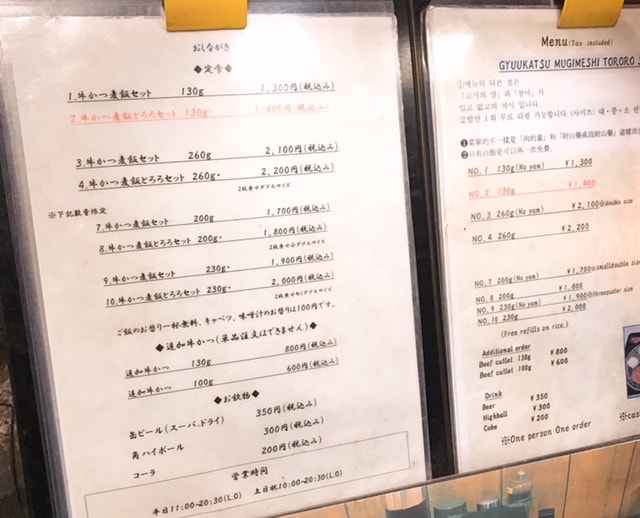 おしながき
◆定食◆
1.牛かつ麦飯セット 130g 1,300円(税込み)
2.牛かつ麦飯とろろセット 130g・ 1,400円(税込み)
3.牛かつ麦飯セット 260g 2,100円(税込み)
4.牛かつ麦飯とろろセット 260g・ 2,200円(税込み)
2段乗せダブルサイズ
※下記数量限定
7.牛かつ麦飯セット 200g 1,700円(税込み)
8.牛かつ麦飯とろろセット 200g・ 1,800円(税込み)
2段乗せ小ダブルサイズ
9.牛かつ麦飯セット 230g 1,900円(税込み)
10.牛かつ麦飯とろろセット 230g・ 2,000円(税込み)
ご飯のお替り一杯無料、キャベツ、味噌汁のお替りは100円です。
◆追加牛かつ(単品注文はできません)◆
追加牛かつ 130g 800円(税込み)
追加牛かつ 100g 600円(税込み)
◆お飲物◆
缶ビール(スーパードライ) 350円(税込み)
角ハイボール 300円(税込み)
コーラ 200円(税込み)
営業時間
平日11:00-20:30(L.O) 土日祝10:00-20:30(L.O)
Menu(Tax included)
GYUUKATSU MUGIMESHI TORORO
①메뉴의 다른 점은
「고기의 양」과 「참마」가
있고 없고의 차이 입니다.
②밥만 1회 무료 리필 가능합니다. (사이즈: 대・중・소 선
❶菜單的不一樣是「肉的量」和「附山藥或沒附山藥」這樣而
❷只有白飯是可以再一次免費.
NO. 1 130g(No yam) ¥1,300
NO. 2 130g ¥1,400
NO. 3 260g(No yam) ¥2,100@double size
NO. 4 260g ¥2,200
NO. 7 200g(No yam) ¥1,700@smalldouble size
NO. 8 200g ¥1,800
NO. 9 230g(No yam) ¥1,900@threequater size
NO. 10 230g ¥2,000
(Free refills on rice.)
Additional order
Beef cutlet 130g ¥800
Beef cutlet 100g ¥600
Drink
Beer ¥350
Highball ¥300
Coke ¥200
※One person One order
※cas